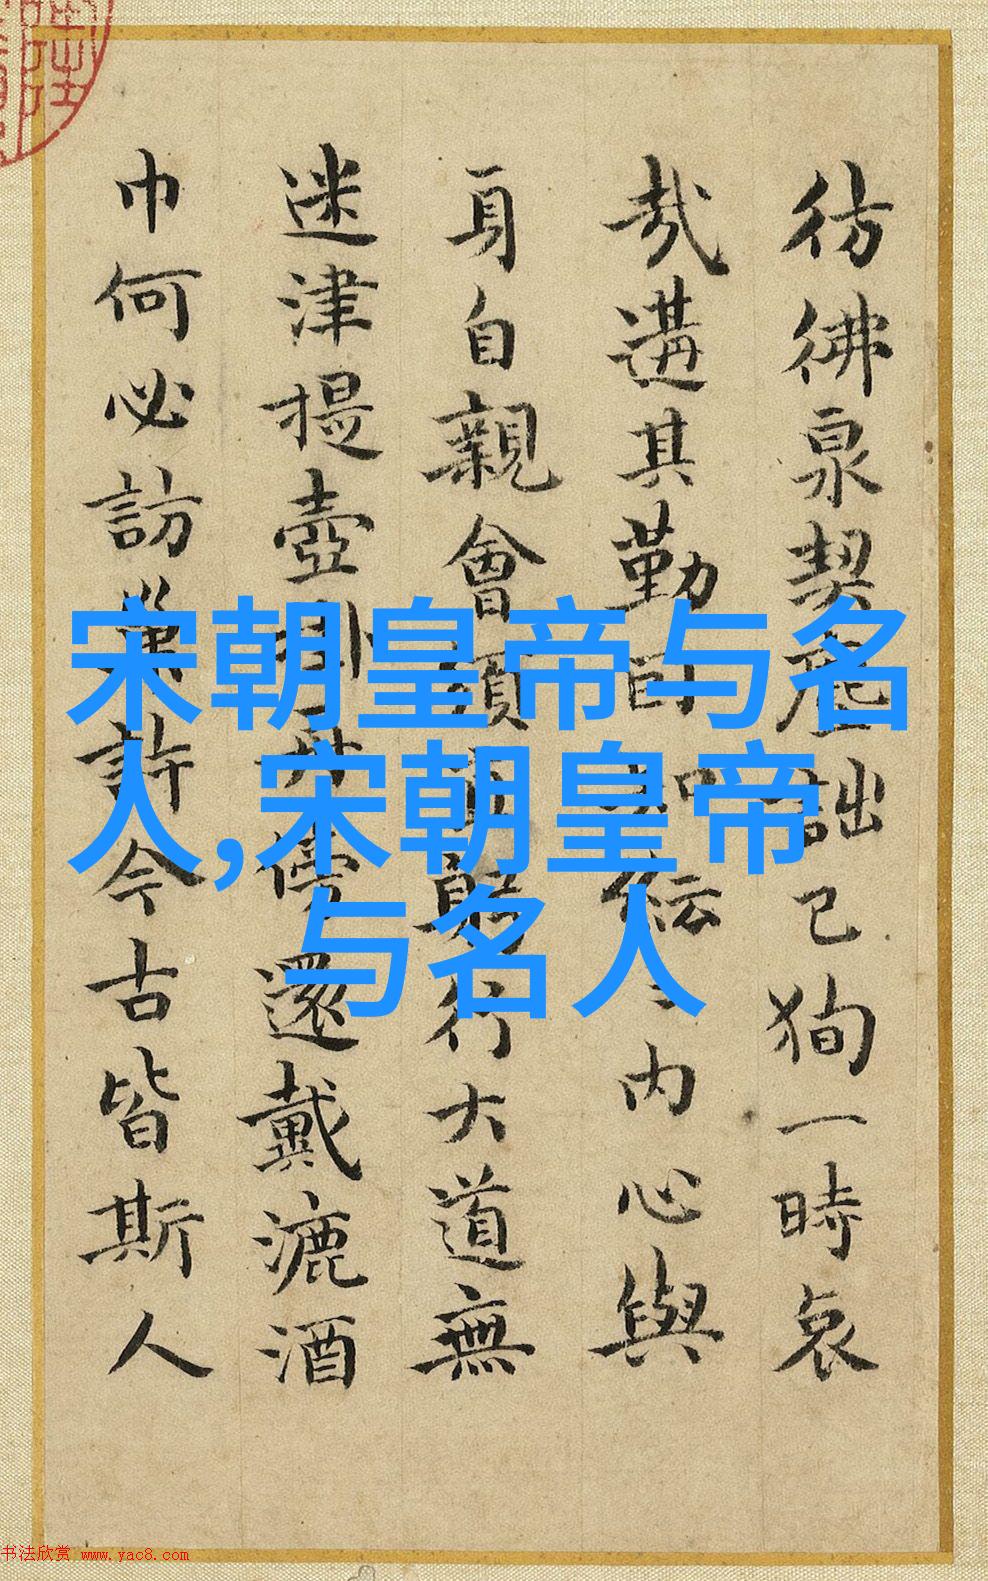 彷彿泉契詘已狥一時哀
哉遘其勤紜内心與
身自親會須躬行大道無
迷津提壺掛停還戴漉酒
巾何必訪巢許今古皆斯人
宋朝皇帝与名
人,宋朝皇帝
与名人
书法欣赏 www.yac8.com